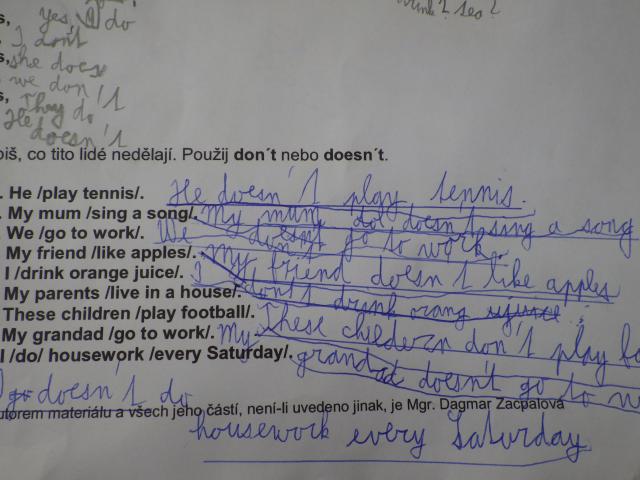 Yes, I do
I don't
she does
we don't
They do
He doesn't
co tito lidé nedělají. Použij don´t nebo doesn´t.
He /play tennis/. He doesn't play tennis.
My mum /sing a song/. My mum doesn't sing a song
We /go to work/. We don't go to work.
My friend /like apples/. my friend doesn't like apples
I /drink orange juice/. I don't drink orang
My parents /live in a house/.
These children /play football/. These children don't play
My grandad /go to work/. My
I /do/ housework /every Saturday/. grandad doesn't go to
doesn't do
autorem materiálu a všech jeho částí, není-li uvedeno jinak, je Mgr. Dagmar Zacpalová
housework every Saturday